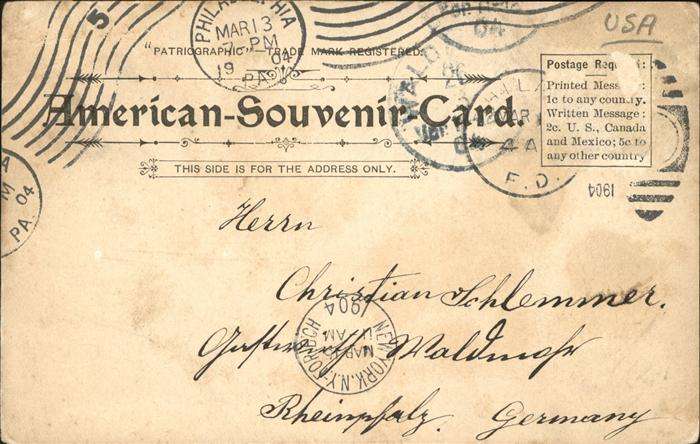 USA
5
PHILADELPHIA
MAR 13
7-PM
19 04
PA.
04
"PATRIOGRAPHIC"—TRADE MARK REGISTERED.
American-Souvenir-Card.
THIS SIDE IS FOR THE ADDRESS ONLY.
Postage Req :
Printed Mess :
1c to any country.
Written Message :
2c. U. S., Canada
and Mexico; 5c to
any other country
F. D.
1904
A
M
04
PA.
Herrn
Christian Schlemmer.
1904
NEW YORK, N.Y.
MAR
AM
Gastwirt Waldmohr
Rheinpfalz. Germany